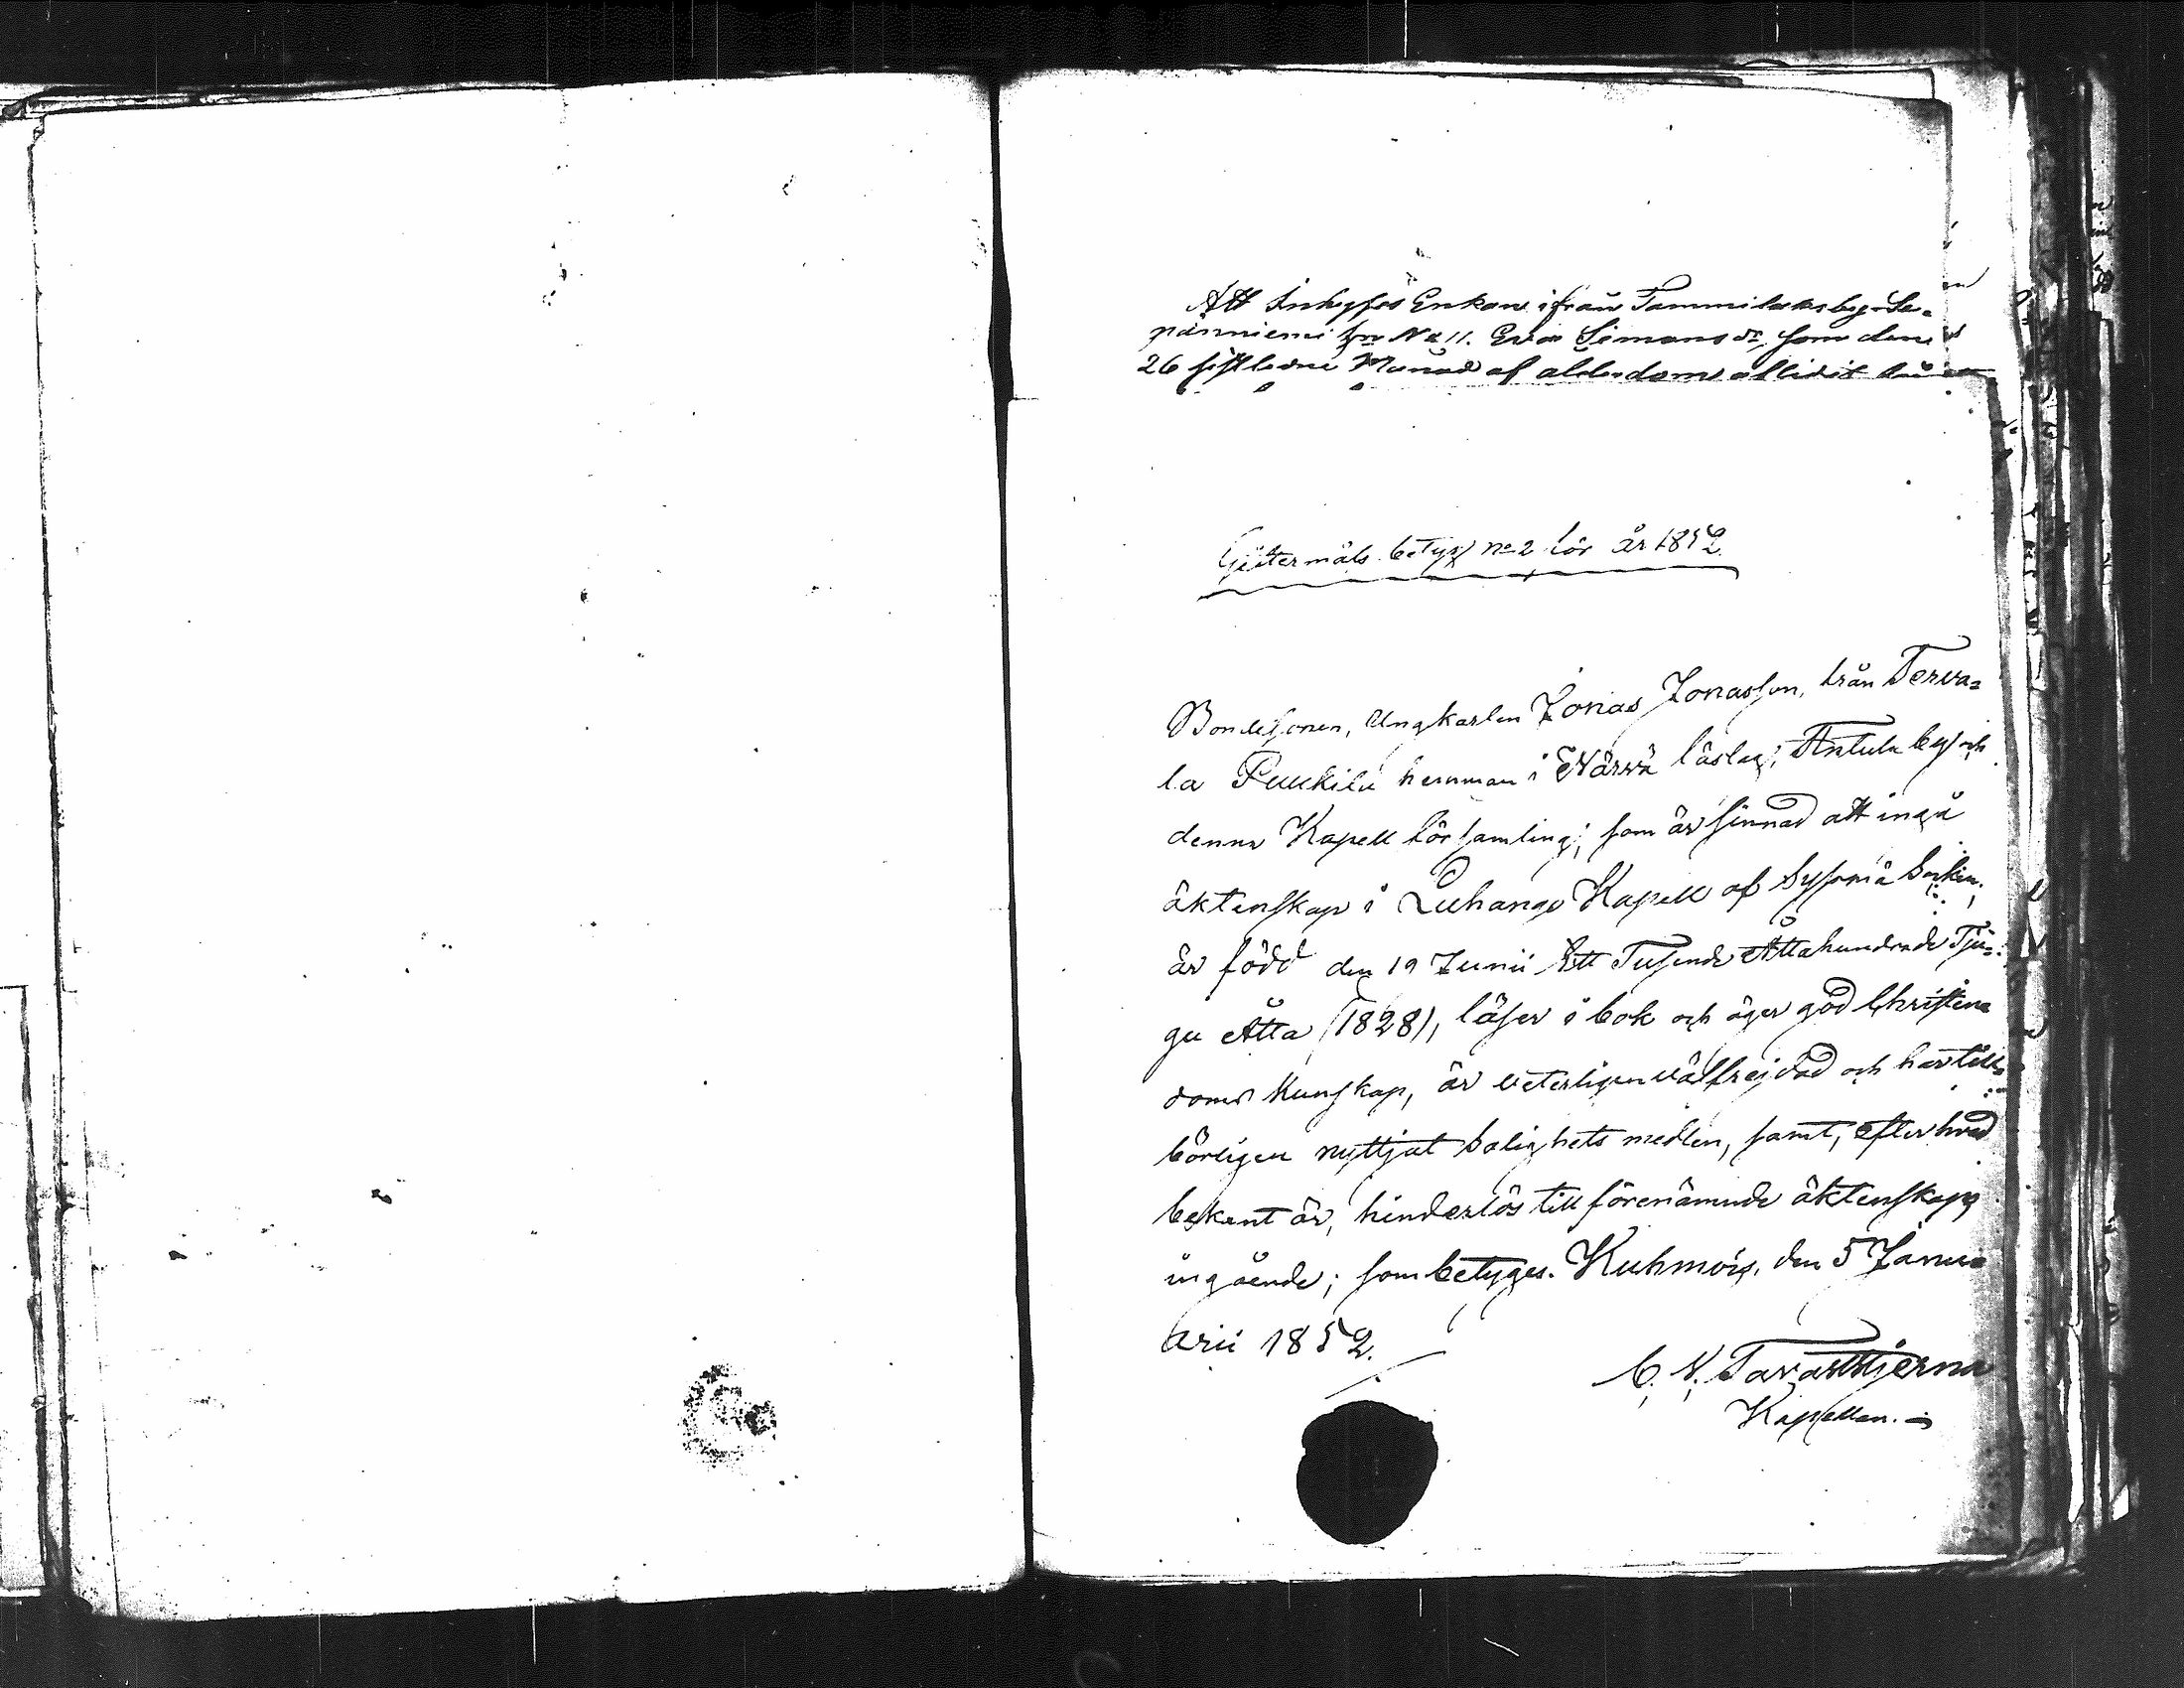 Att Inhyses Enkan ifrån Tammilaks by Le=
pänniemi hn No 11. Eva Simons dr, som den
26 sistledne Månad af ålderdom aflidit
Giftermåls betyg no 2 för år 1852.
Bondesonen, Ungkarlen Jonas Jonasson, från Terva=
la Puukila hemman i Närvä läslag, Antula by och
denna Kapell församling; som är sinnad att ingå
äktenskap i Luhango Kapell af Sysmä Socken,
är född den 19 Junii Ett Tusende Åttahundrade Tju=
gu Åtta (1828), läser i bok och äger god Christen=
doms kunskap, är veterligen välfrejdad och har till=
börligen nyttjat Salighets medlen, samt, efter hvad
bekant är, hinderlös till förenämnde äktenskaps
ingående; som betyges. Kuhmois, den 5 Janu=
arii 1852.
C. N. Tavaststjerna
Kapellan.